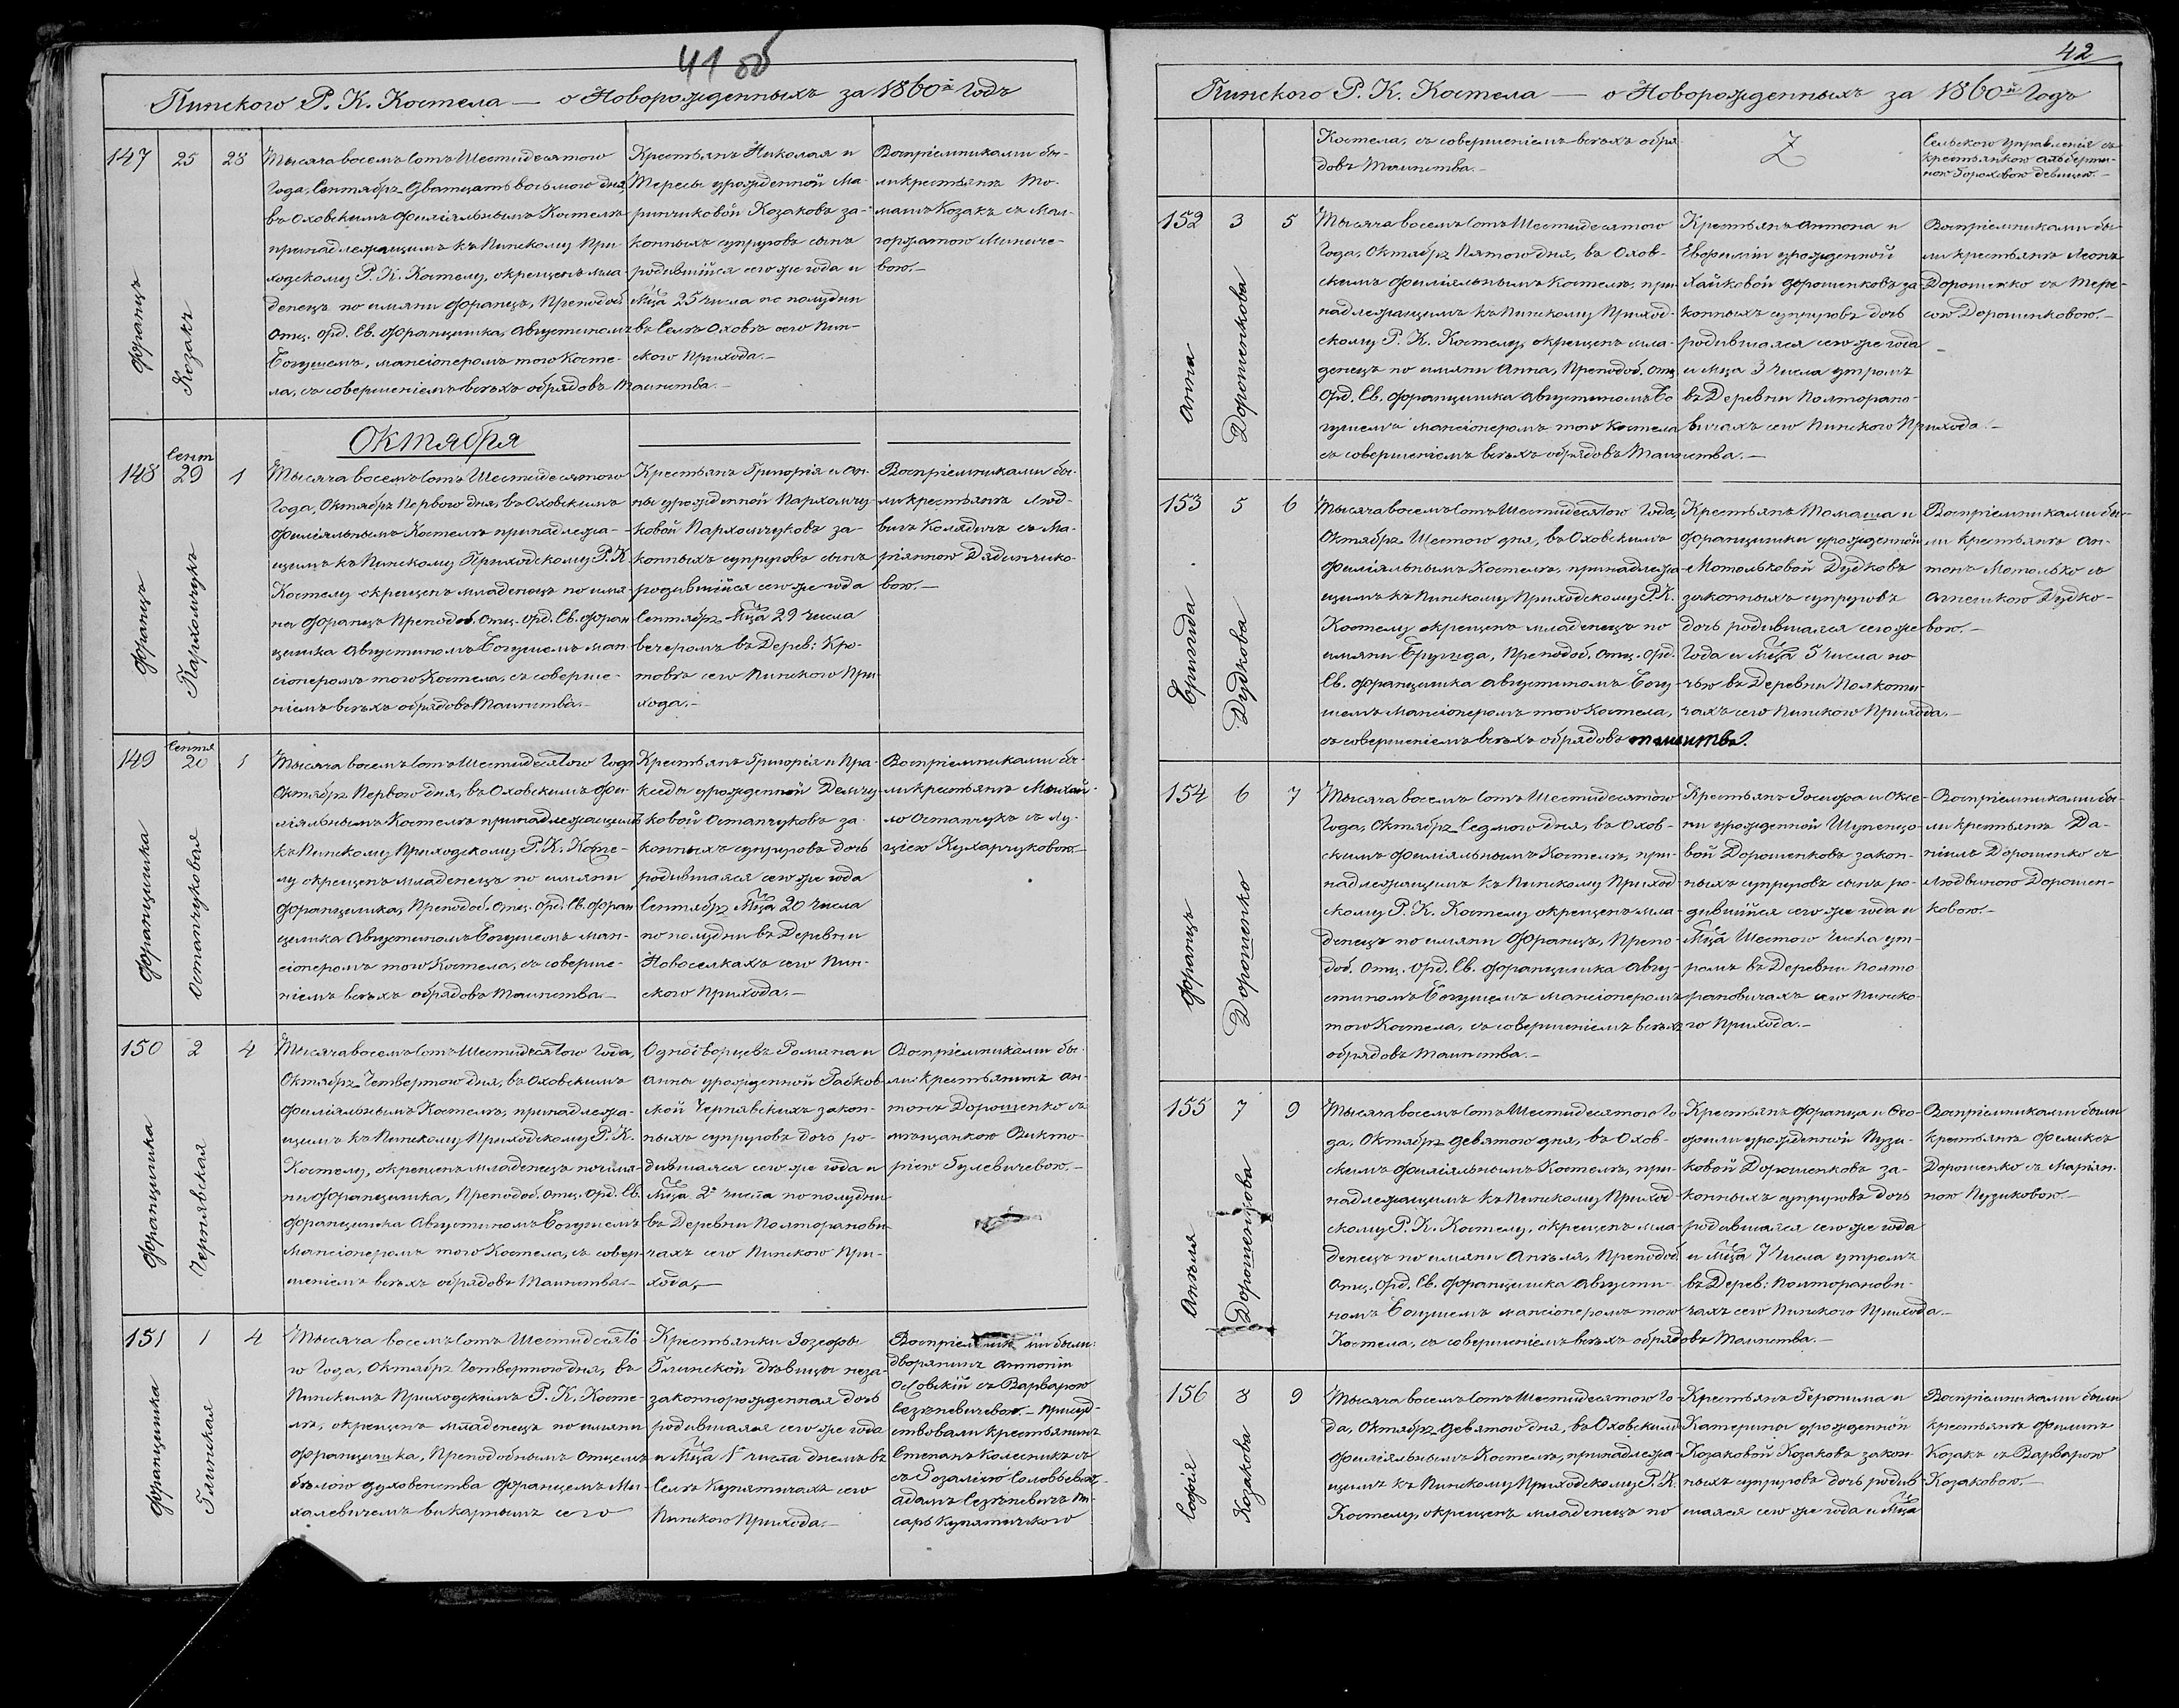 41 об
Пинского Р. К. Костела — о Новорожденныхъ за 1860й Годъ
147
25
28
Францъ
Козакъ
Тысяча восемъ Сотъ Шестидесятого
Года, Сентябръ Дватцать восьмого дня
въ Оховскимъ Филіяльнымъ Костелѣ
принадлежащимъ къ Пинскому При
ходскому Р. К. Костелу, окрещенъ мла
денецъ по имяни Францъ, Преподоб.
Отц. Орд. Св. Францишка, Августиномъ
Богушемъ, мансіонеромъ того Косте-
ла, съ совершеніемъ всѣхъ обрядовъ Таинства.-
Крестьянъ Николая и
Тересы урожденной Ма-
ринчиковой Козаковъ за-
конныхъ супруговъ сынъ
родившійся сего же года и
Мца 25 числа по полудни
въ Селѣ Оховѣ сего Пин-
скаго Прихода.-
Воспріемниками бы-
ли крестьянъ То-
машъ Козакъ съ Мал-
горжатою Миниче-
вою.-
Октября
148
Сент
29
1
Францъ
Пархомчукъ
Тысяча восемъ Сотъ Шестидесятого
Года, Октябръ Первого дня, въ Оховскимъ
Филіяльнымъ Костелѣ принадлежа-
щимъ къ Пинскому Приходскому Р. К
Костелу окрещенъ младенецъ по имя
ни Францъ Преподоб. Отц. Орд. Св. Фран
цишка Августиномъ Богушемъ ман-
сіонеромъ того Костела, съ соверше-
ніемъ всѣхъ обрядовъ Таинства.-
Крестьянъ Григорія и Ан-
ны урожденной Пархомчу-
ковой Пархомчуковъ за-
конныхъ супруговъ сынъ
родившійся сего же года
Сентябръ Мца 29 числа
вечеромъ въ Дерев: Кро-
товѣ сего Пинского При
хода.-
Воспріемниками бы-
ли крестьянъ Люд-
вигъ Колядичъ съ Ма-
ріянною Дядинчико-
вою.-
149
Сентя
20
1
Францишка
Остапчуковая
Тысяча восемъ Сотъ Шестидесятого Года
Октябръ Первого дня, въ Оховскимъ Фи-
ліяльнымъ Костелѣ принадлежащимъ
къ Пинскому Приходскому Р. К. Косте-
лу окрещенъ младенецъ по имяни
Францишка, Преподоб. Отц. Орд. Св. Фран
цишка Августиномъ Богушемъ ман-
сіонеромъ того Костела, съ соверше-
ніемъ всѣхъ обрядовъ Таинства.-
Крестьянъ Григорія и Пра-
кседы урожденной Демчу-
ковой Остапчуковъ за-
конныхъ супруговъ дочь
родившаяся сего же года
Сентябръ Мца 20 числа
по полудни въ Деревни
Новоселкахъ сего Пин-
ского Прихода.-
Воспріемниками бы-
ли крестьянъ Михай-
ло Остапчукъ съ Лу-
цією Кухарчуковою.-
150
2
4
Францишка
Чернявская
Тысяча восемъ Сотъ Шестидесятого Года,
Октябръ Четвертого дня, въ Оховскимъ
Филіяльнымъ Костелѣ, принадлежа-
щимъ къ Пинскому Приходскому Р. К.
Костелу, окрещенъ младенецъ по имя-
ни Францишка, Преподоб. Отц. Орд. Св.
Францишка Августиномъ Богушемъ
Мансіонеромъ того Костела, съ совер-
шеніемъ всѣхъ обрядовъ Таинства.-
Однодворцевъ Романа и
Анны урожденной Рабков-
ской Чернявскихъ закон-
ныхъ супруговъ дочь ро-
дившаяся сего же года и
Мца 2 числа по полудни
въ Деревни Полторанови-
чахъ сего Пинского При-
хода.-
Воспріемниками бы-
ли: крестьянинъ Ан-
тонъ Дорошенко съ
мѣщанкою Викто-
рією Гулевичевою.-
151
1
4
Францишка
Глинская
Тысяча восемъ Сотъ Шестидесято
го Года, Октябръ Четвертого дня, въ
Пинскимъ Приходскимъ Р. К. Косте-
лѣ, окрещенъ младенецъ по имяни
Францишка, Преподобнымъ Отцемъ
бѣлого духовенства Францемъ Ми-
халевичемъ викарнымъ сего
Крестьянки Іозефы
Глинской дѣвицы неза-
законнорожденная дочь
родившаяся сего же года
и Мца 1 числа днемъ въ
Селѣ Купятичахъ сего
Пинского Прихода.-
Воспріемник ми были:
дворянинъ Антоній
Осовскій съ Варварою
Сезеневичевою.- Присуд-
ствовали крестьянинъ
Степанъ Колесникъ съ
съ Розалією Соловьевою
Адамъ Сезеневичъ Пи-
сарь Купятичского
42
Пинского Р. К. Костела — о Новорожденныхъ за 1860й Годъ
Костела, съ совершеніемъ всѣхъ обря
довъ Таинства.-
Сельского Управленія съ
крестьянкою Альберти-
ною Гороховою девицею.-
152
3
5
Анна
Дорошенкова
Тысяча восемъ Сотъ Шестидесятого
Года, Октябръ Пятого дня, въ Охов-
скимъ Филіяльнымъ Костелѣ, при-
надлежащимъ къ Пинскому Приход-
скому Р. К. Костелу, окрещенъ мла-
денецъ по имяни Анна, Преподоб. Отц.
Орд. Св. Францишка Августиномъ Бо
гушемъ мансіонеромъ того Костела
съ совершеніемъ всѣхъ обрядовъ Таинства.-
Крестьянъ Антона и
Евфеміи урожденной
Хайковой Дорошенковъ за-
конныхъ супруговъ дочь
родившаяся сего же года
и Мца 3 числа утромъ
въ Деревни Полторано-
вичахъ сего Пинского Прихода.-
Воспріемниками бы
ли крестьянъ Леонъ
Дорошенко съ Тере-
сою Дорошенковою.-
153
5
6
Бригида
Дудкова
Тысяча восемъ Сотъ Шестидесятого Года,
Октябръ Шестого дня, въ Оховскимъ
Филіяльнымъ Костелѣ, принадлежа-
щимъ къ Пинскому Приходскому Р. К.
Костелу окрещенъ младенецъ по
имяни Бригида, Преподоб. Отц. Орд.
Св. Францишка Августиномъ Богу-
шемъ Мансіонеромъ того Костела,
съ совершеніемъ всѣхъ обрядовъ таинства.
Крестьянъ Томаша и
Францишки урожденной
Мотольковой Дудковъ
законныхъ супруговъ
дочь родившаяся сего же
Года и Мца 5 числа но-
чью въ Деревни Полкоти-
чахъ сего Пинского Прихода.-
Воспріемниками бы-
ли крестьянъ Ан-
тонъ Мотолько съ
Агнешкою Дудко-
вою.-
154
6
7
Францъ
Дорошенко
Тысяча восемъ Сотъ Шестидесятого
Года, Октябръ Седмого дня, въ Охов-
скимъ Филіяльнымъ Костелѣ, при-
надлежащимъ къ Пинскому Приход
скому Р. К. Костелу окрещенъ мла-
денецъ по имяни Францъ, Препо-
доб. Отц. Орд. Св. Францишка Авгу-
стиномъ Богушемъ мансіонеромъ
того Костела, съ совершеніемъ всѣхъ
обрядовъ Таинства.-
Крестьянъ Іосифа и Оксе-
ни урожденной Шупенцо-
вой Дорошенковъ закон-
ныхъ супруговъ сынъ ро-
дившійся сего же года и
Мца Шестого числа ут-
ромъ въ Деревни Полто-
рановичахъ сего Пинско-
го Прихода.-
Воспріемниками бы-
ли крестьянъ Да-
ніилъ Дорошенко съ
Людвикою Дорошен-
ковою.-
155
7
9
Анѣля
Дорошенкова
Тысяча восемъ Сотъ Шестидесятого Го-
да, Октябръ девятого дня, въ Охов-
скимъ Филіяльнымъ Костелѣ, при-
надлежащимъ къ Пинскому Приход-
скому Р. К. Костелу, окрещенъ мла-
денецъ по имяни Анѣля, Преподоб.
Отц. Орд. Св. Францишка Августи-
номъ Богушемъ мансіонеромъ того
Костела, съ совершеніемъ всѣхъ обрядовъ Таинства.-
Крестьянъ Франца и Ѳео-
фили урожденной Пузи-
ковой Дорошенковъ за-
конныхъ супруговъ дочь
родившаяся сего же года
и Мца 7 числа утромъ
въ Дерев: Полторанови-
чахъ сего Пинского Прихода.-
Воспріемниками были
крестьянъ Феликсъ
Дорошенко съ Маріян-
ною Пузиковою.-
156
8
9
Софія
Козакова
Тысяча восемъ Сотъ Шестидесятого Го-
да, Октябръ девятого дня, въ Оховскимъ
Филіяльнымъ Костелѣ, принадлежа-
щимъ къ Пинскому Приходскому Р. К.
Костелу, окрещенъ младенецъ по
Крестьянъ Геронима и
Катерины урожденной
Козаковой Козаковъ закон-
ныхъ супруговъ дочь родив-
шаяся сего же года и Мца
Воспріемниками были
крестьянъ Филипъ
Козакъ съ Варварою
Козаковою.-